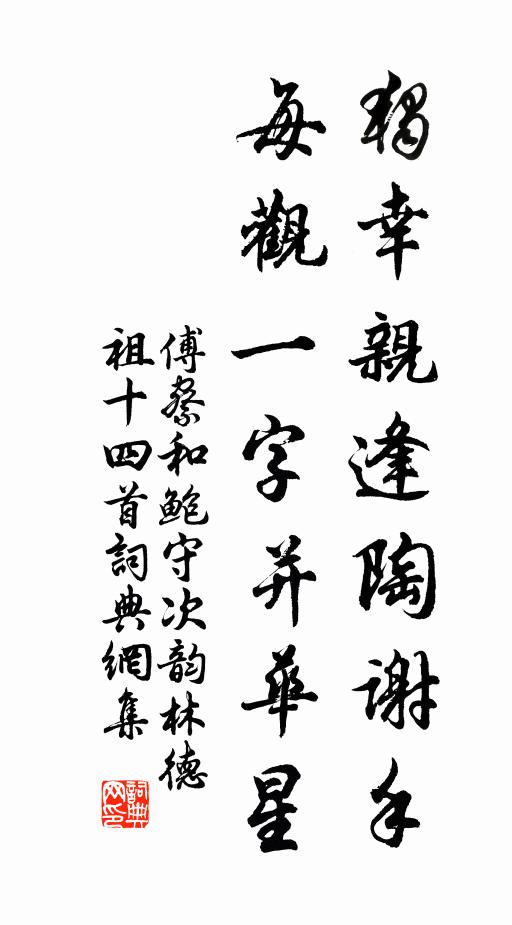 獨幸親逢陶謝手
每觀一字并華星
傅察和鮑守次韵林德
祖十四首詞典網集
詞典
网印